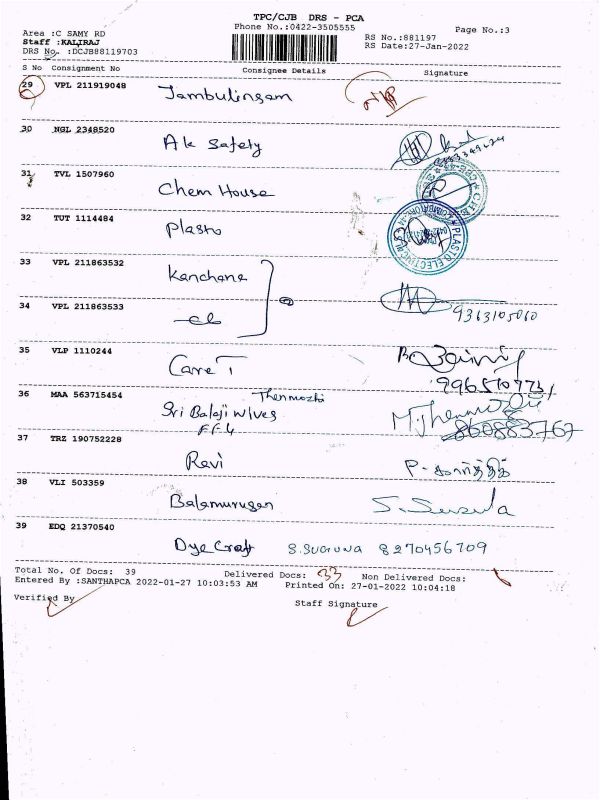 TPC/CJB DRS - PCA
Phone No.:0422-3505555
Page No.:3
Area :C SAMY RD
Staff :KALIRAJ
DRS No. :DCJB88119703
RS No.:881197
RS Date:27-Jan-2022
S No Consignment No Consignee Details Signature
29 VPL 211919048 Jambulingam
30 NGL 2348520 Ak Safety
31 TVL 1507960 Chem House
32 TUT 1114484 Plasto
33 VPL 211863532 Kanchana
9363105060
34 VPL 211863533
35 VLP 1110244 Care T
36 MAA 563715454 Thenmozhi
Sri Balaji Wives
FF4
37 TRZ 190752228 Ravi P. கார்த்திக்
38 VLI 503359 Balamurugan S. Susila
39 EDQ 21370540 Dye Craft S. Suguna 8270456709
Total No. Of Docs: 39 Delivered Docs: 33 Non Delivered Docs:
Entered By :SANTHAPCA 2022-01-27 10:03:53 AM Printed On: 27-01-2022 10:04:18
Verified By
Staff Signature